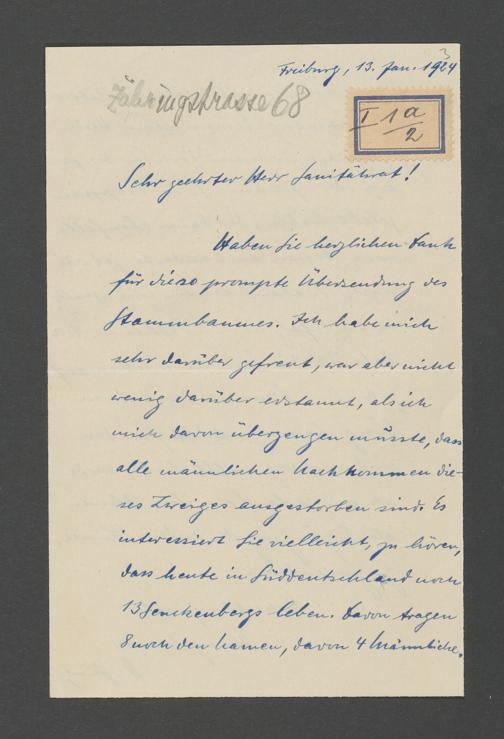 3
Freiburg, 13. Jan. 1924
Zähringstrasse 68
I 1a/2
Sehr geehrter Herr Sanitätsrat!
Haben Sie herzlichen Dank
für diese prompte Übersendung des
Stammbaumes. Ich habe mich
sehr darüber gefreut, war aber nicht
wenig darüber erstaunt, als ich
mich davon überzeugen müsste, dass
alle männlichen Nachkommen die-
ses Zweiges ausgestorben sind. Es
interessiert Sie vielleicht, zu hören,
dass heute in Süddeutschland noch
13 Senckenbergs leben. Davon tragen
8 noch den Namen, davon 4 Männliche.